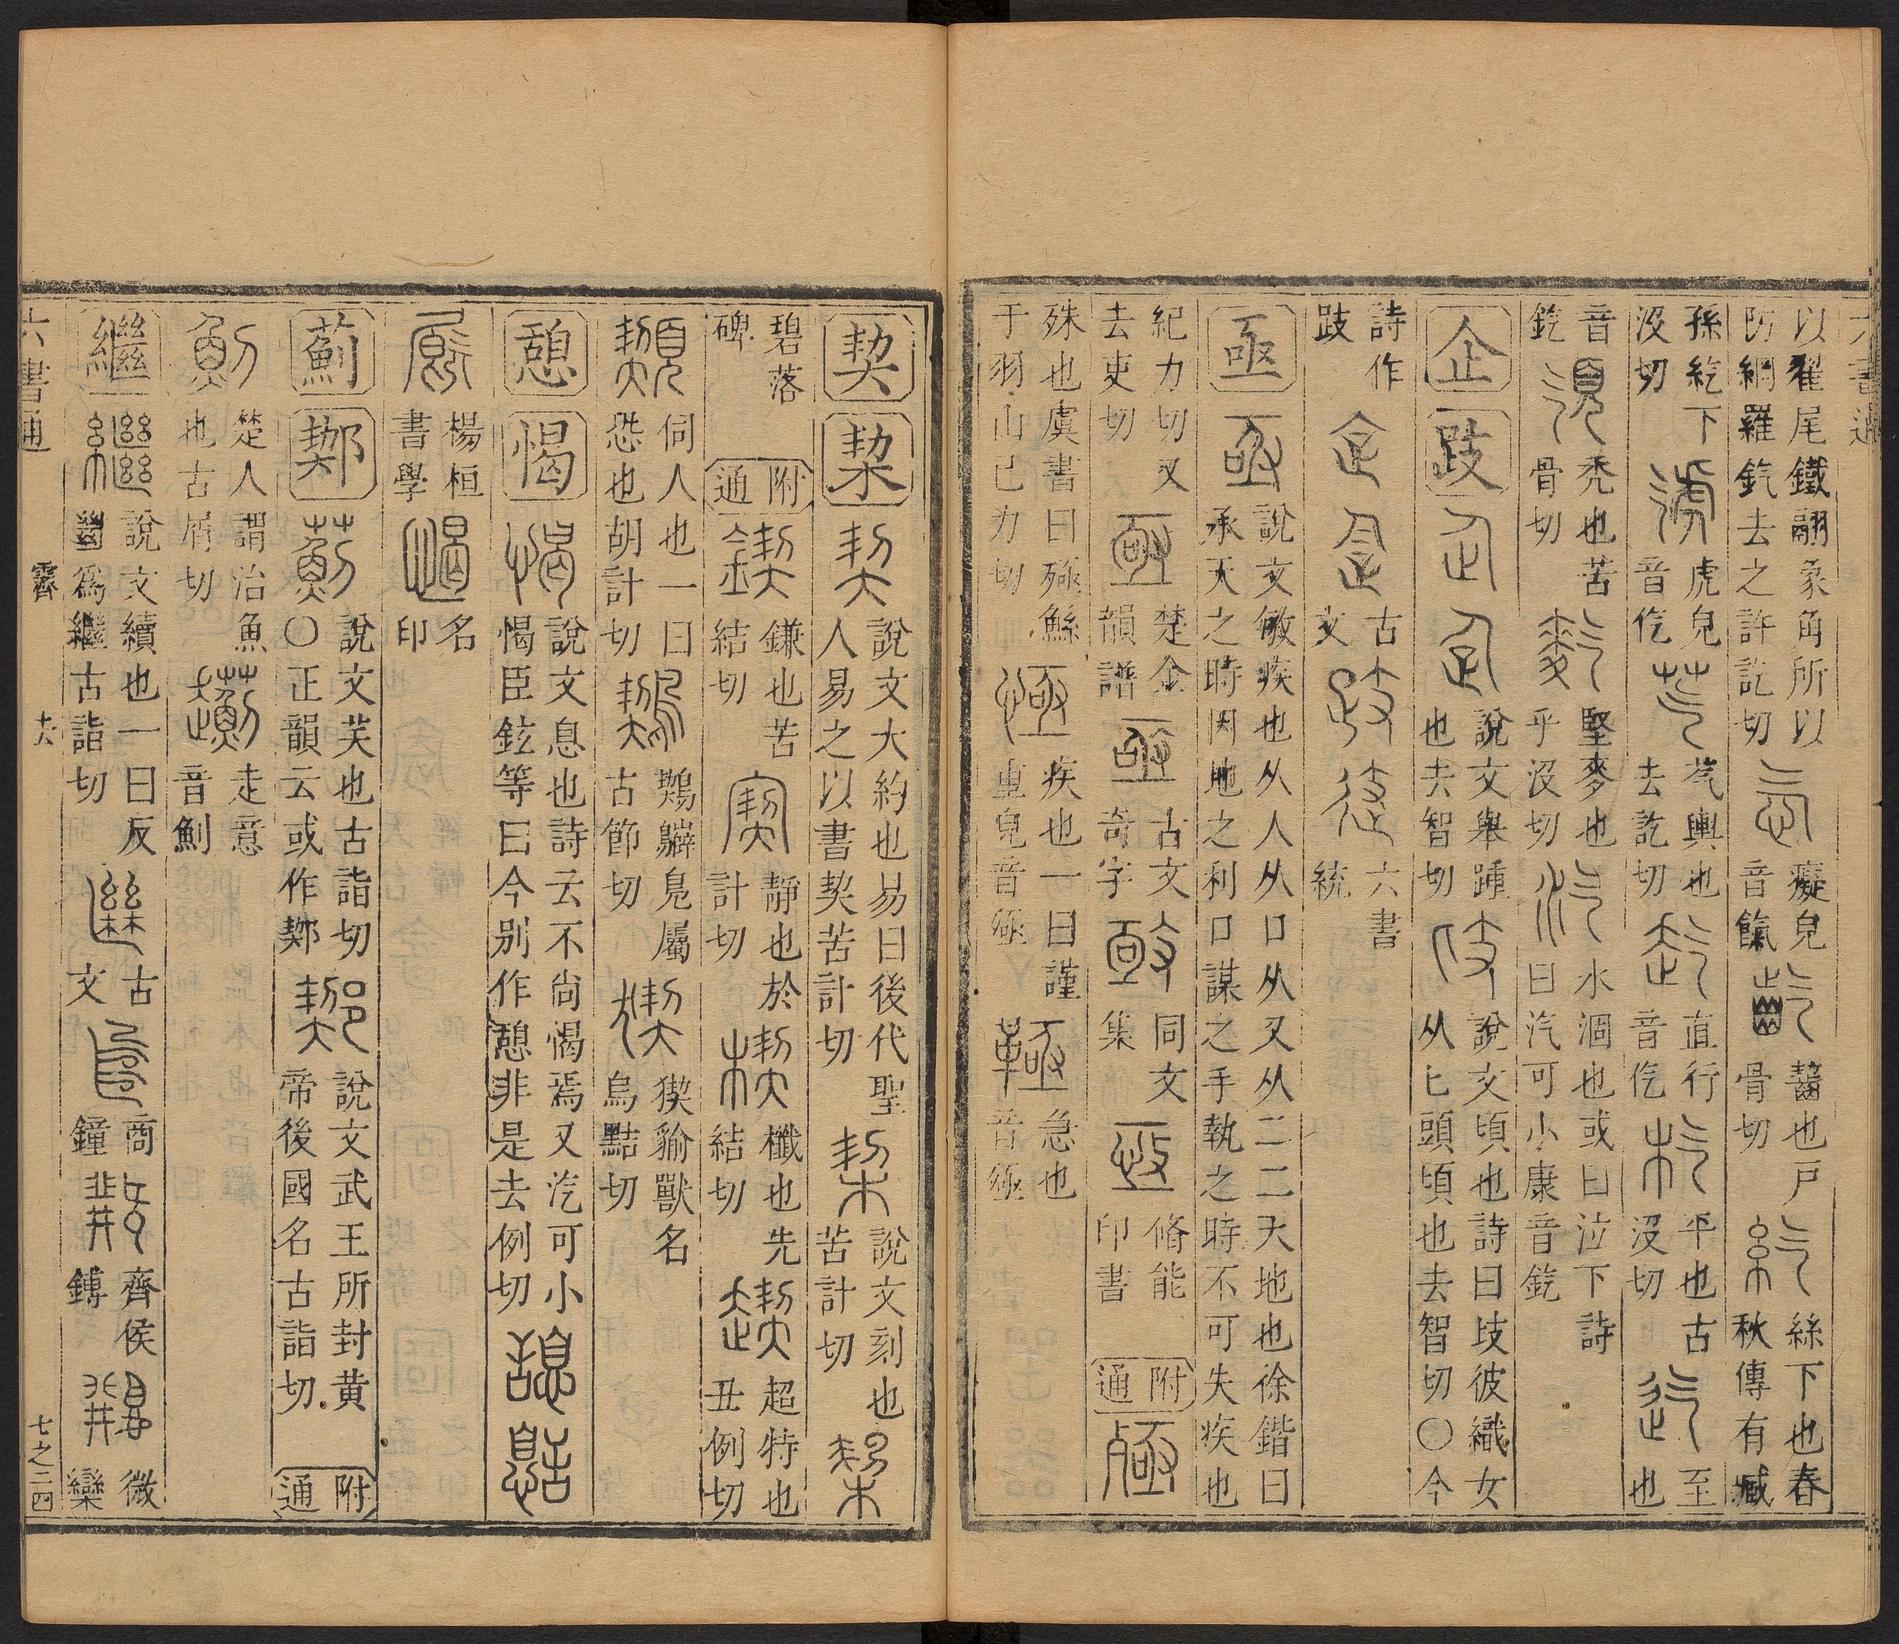 六書通
以翟尾鐵翮象角所以防網羅釳去之許訖切 癡皃音餼 齧也戶骨切 絲下也春秋傳有臧
孫紇下沒切 虎皃音仡 芞輿也去訖切 直行音仡 平也古沒切 至也
音釳 禿也苦骨切 堅麥也乎沒切 水涸也或曰泣下詩曰汽可小康音釳
企 跂 說文舉踵也去智切 說文頃也詩曰歧彼織女从匕頭頃也去智切〇今
詩作跂 古文 六書統
亟 說文敏疾也从人从口从又从二二天地也徐鍇曰承天之時因地之利口謀之手執之時不可失疾也
紀力切又去吏切 楚金韻譜 古文奇字 同文集 脩能印書 附通
殊也虞書曰殛鯀于羽山己力切 疾也一曰謹重皃音殛 急也音殛
契 栔 說文大約也易曰後代聖人易之以書契苦計切 說文刻也苦計切
碧落碑 附通 鎌也苦結切 靜也於計切 櫼也先結切 超特也丑例切
伺人也一曰恐也胡計切 鷞鸊鳧屬古節切 猰貐獸名烏黠切
憩 愒 說文息也詩云不尚愒焉又汔可小愒臣鉉等曰今別作憩非是去例切
楊桓書學 名印
薊 鄚 說文芙也古詣切〇正韻云或作鄚 說文武王所封黃帝後國名古詣切 附通
楚人謂治魚也古屑切 走意音魝
繼 說文續也一曰反㡭爲繼古詣切 古文 商鐘 齊侯鎛 微欒
六書通 霽 十六 七之二四